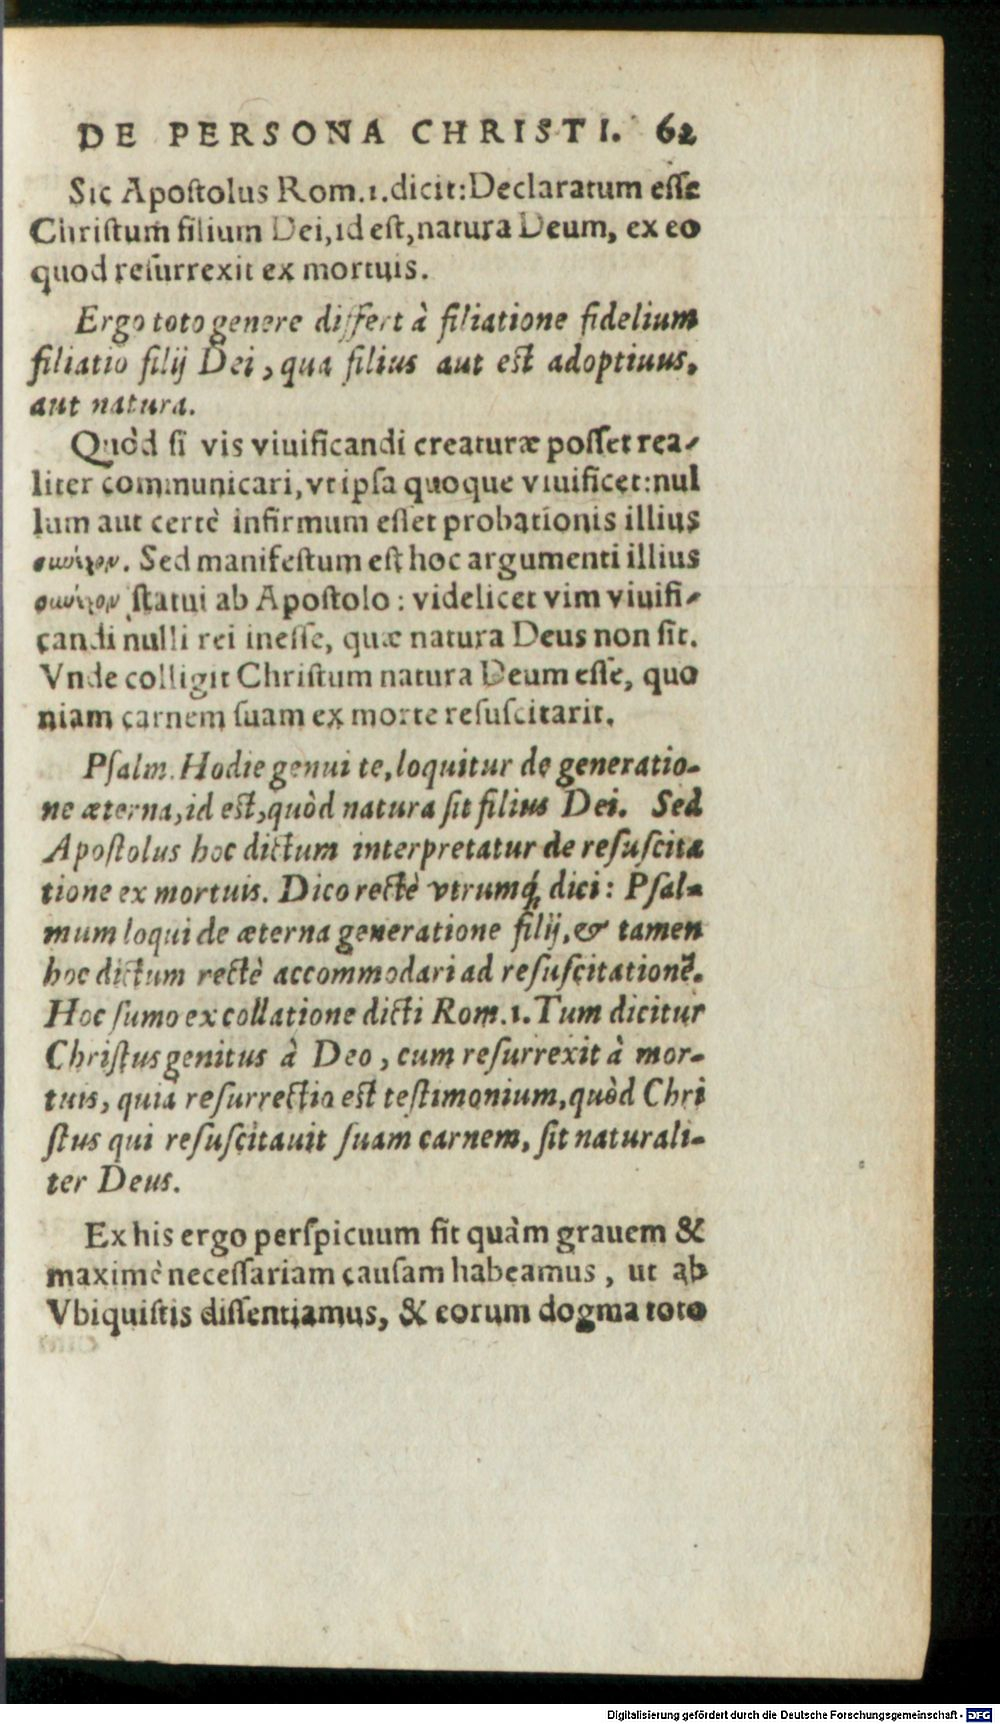 DE PERSONA CHRISTI. 62
Sic Apostolus Rom.1.dicit:Declaratum esse
Christum filium Dei,id est,natura Deum, ex eo
quod resurrexit ex mortuis.
Ergo toto genere differt à filiatione fidelium
filiatio filij Dei, qua filius aut est adoptiuus,
aut natura.
Quòd si vis viuificandi creaturæ posset rea-
liter communicari,vt ipsa quoque viuificet:nul
lum aut certè infirmum esset probationis illius
συνέχον. Sed manifestum est hoc argumenti illius
συνέχον statui ab Apostolo: videlicet vim viuifi-
candi nulli rei inesse, quæ natura Deus non sit.
Vnde colligit Christum natura Deum esse, quo
niam carnem suam ex morte resuscitarit.
Psalm. Hodie genui te, loquitur de generatio-
ne æterna, id est, quòd natura sit filius Dei. Sed
Apostolus hoc dictum interpretatur de resuscita
tione ex mortuis. Dico rectè vtrumq́; dici: Psal-
mum loqui de æterna generatione filij, & tamen
hoc dictum rectè accommodari ad resuscitationē.
Hoc sumo ex collatione dicti Rom.1. Tum dicitur
Christus genitus à Deo, cum resurrexit à mor-
tuis, quia resurrectio est testimonium, quòd Chri
stus qui resuscitauit suam carnem, sit naturali-
ter Deus.
Ex his ergo perspicuum fit quàm grauem &
maximè necessariam causam habeamus, ut ab
Vbiquistis dissentiamus, & eorum dogma toto
Digitalisierung gefördert durch die Deutsche Forschungsgemeinschaft - DFG